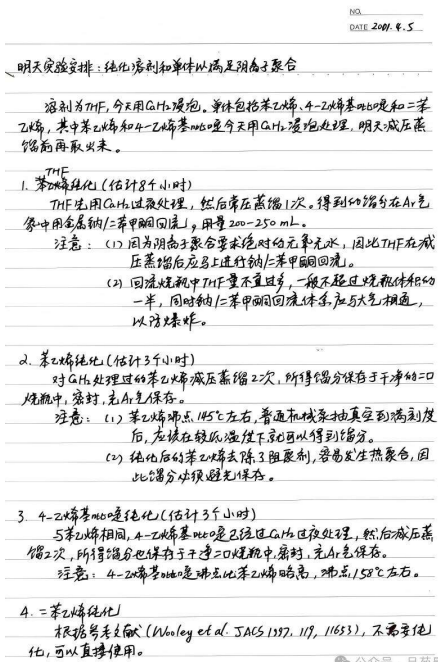 NO.
DATE 2001.4.5
明天实验安排：纯化溶剂和单体以满足阴离子聚合
溶剂为THF，今天用CaH₂浸泡。单体包括苯乙烯、4-乙烯基吡啶和二苯
乙烯，其中苯乙烯和4-乙烯基吡啶今天用CaH₂浸泡处理，明天减压蒸
馏前再取出来。
THF
1. 苯乙烯纯化（估计8个小时）
THF先用CaH₂过夜处理，然后常压蒸馏1次。得到的馏分在Ar气
氛中用金属钠/二苯甲酮回流，用量200-250mL。
注意：（1）因为阴离子聚合要求绝对的无氧无水，因此THF在减
压蒸馏后应马上进行钠/二苯甲酮回流。
（2）回流烧瓶中THF量不宜过多，一般不超过烧瓶体积的
一半，同时钠/二苯甲酮回流体系应与大气相通，
以防爆炸。
2. 苯乙烯纯化（估计3个小时）
对CaH₂处理过的苯乙烯减压蒸馏2次，所得馏分保存于干净的二口
烧瓶中，密封，充Ar气保存。
注意：（1）苯乙烯沸点145℃左右，普通机械泵抽真空到满刻度
后，应该在较低温度下就可以得到馏分。
（2）纯化后的苯乙烯去除了阻聚剂，容易发生热聚合，因
此馏分必须避光保存。
3. 4-乙烯基吡啶纯化（估计3个小时）
与苯乙烯相同，4-乙烯基吡啶已经过CaH₂过夜处理，然后减压蒸
馏2次，所得馏分也保存于干净二口烧瓶中，密封，充Ar气保存。
注意：4-乙烯基吡啶沸点比苯乙烯略高，沸点158℃左右。
4. 二苯乙烯纯化
根据参考文献（Wooley et al. JACS 1997, 119, 11653），不需要纯
化，可以直接使用。
公众号